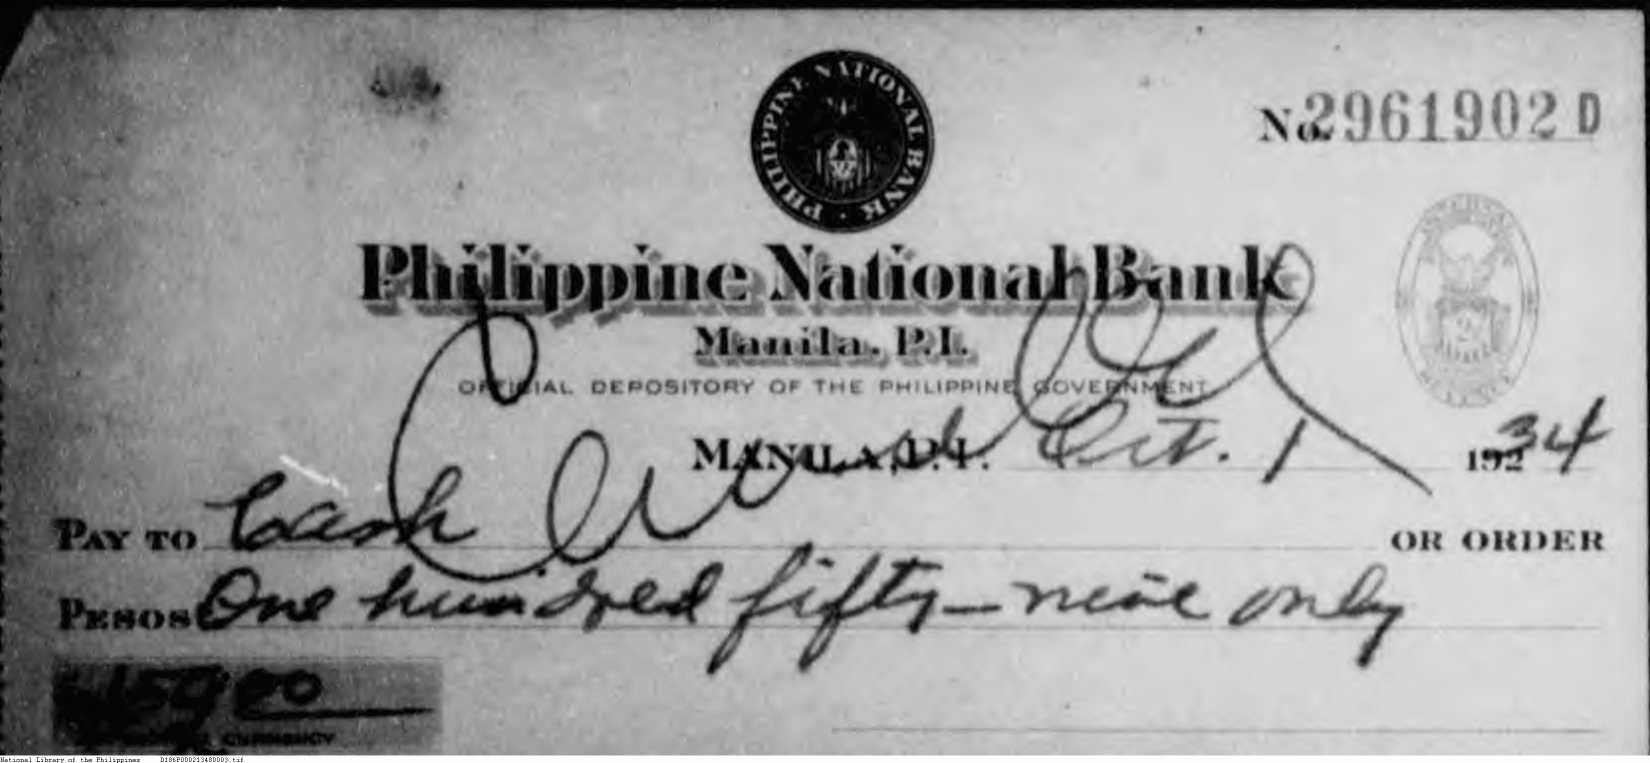 PHILIPPINE NATIONAL BANK
No. 2961902 D
Philippine National Bank
Manila, P.I.
OFFICIAL DEPOSITORY OF THE PHILIPPINE GOVERNMENT
Cancelled
MANILA, P.I. Oct. 1 192 34
PAY TO Cash OR ORDER
PESOS One hundred fifty-nine only
159 00
CURRENCY
National Library of the Philippines D186P000213480003.tif